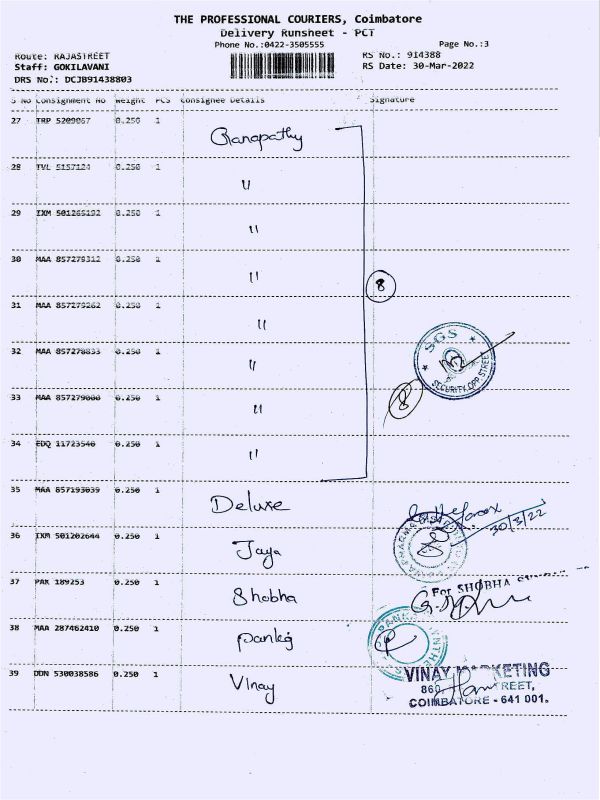 THE PROFESSIONAL COURIERS, Coimbatore
Delivery Runsheet - PCT
Phone No.:0422-3505555
Page No.:3
Route: RAJASTREET
RS No.: 914388
Staff: GOKILAVANI
RS Date: 30-Mar-2022
DRS No.: DCJB91438803
S No Consignment No Weight PCS Consignee Details Signature
27 TRP 5209067 0.250 1 Ganapathy
28 TVL 5157124 0.250 1 "
29 IXM 501265192 0.250 1 "
30 MAA 857279312 0.250 1 "
8
31 MAA 857279262 0.250 1 "
32 MAA 857278833 0.250 1 "
SGS
SECURITY, OPP STREET
33 MAA 857279000 0.250 1 "
8
34 EDQ 11723540 0.250 1 "
35 MAA 857193039 0.250 1 Deluxe
30/3/22
36 IXM 501202644 0.250 1 Jaya
37 PAK 189253 0.250 1 Shobha
For SHOBHA
38 MAA 287462410 0.250 1 Pankaj
39 DDN 530038586 0.250 1 Vinay
VINAY MARKETING
860, STREET,
COIMBATORE - 641 001.